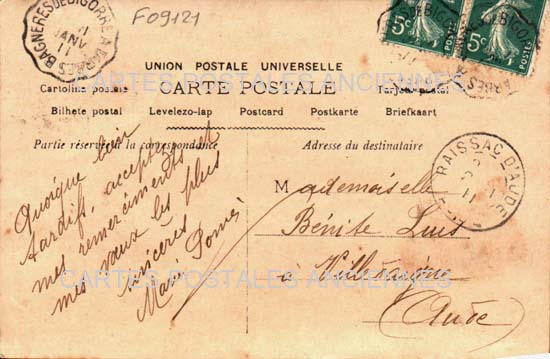 F09121
BAGNERES DE BIGORRE A
JANV
11
5c
5c
POSTES
UNION POSTALE UNIVERSELLE
CARTE POSTALE
Cartolina postale
Tarjeta postal
Bilhete postal Levelezo-lap Postcard Postkarte Briefkaart
Partie réservée à la correspondance
Adresse du destinataire
Quoique bien
tardifs, acceptez et
mes remerciments et
mes vœux les plus
sincères
Marie
RAISSAC D'AUDE
11
Mademoiselle
Bénite Luis
à
(Aude)
CARTES POSTALES ANCIENNES
CARTES POSTALES ANCIENNES